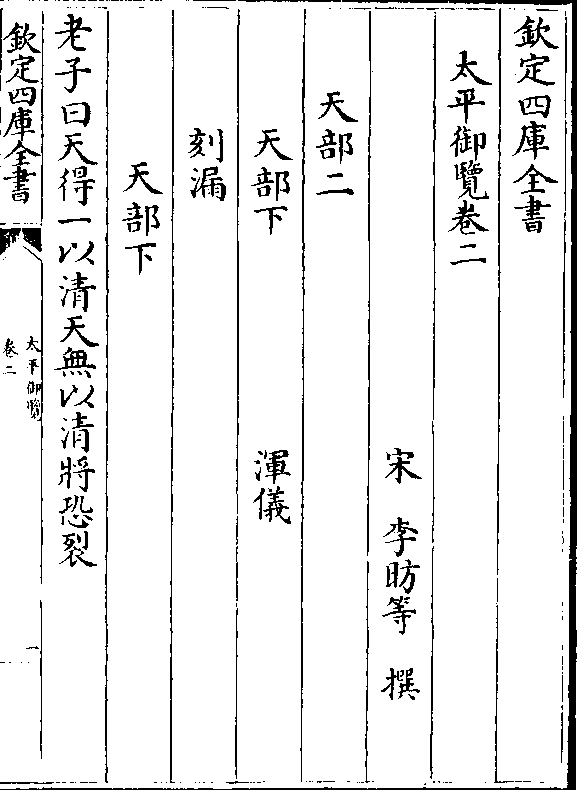 欽定四庫全書
太平御覽卷二
宋 李昉等 撰
天部二
天部下 渾儀
刻漏
天部下
老子曰天得一以清天無以清將恐裂
欽定四庫全書
太平御覽
卷二
一